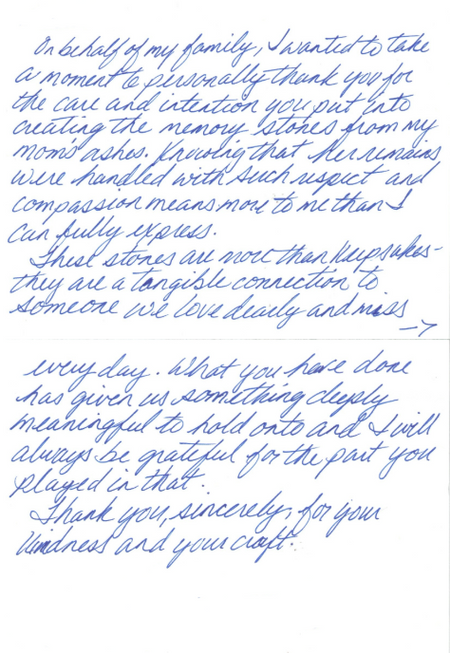 On behalf of my family, I wanted to take
a moment to personally thank you for
the care and intention you put into
creating the memory stones from my
mom's ashes. Knowing that her remains
were handled with such respect and
compassion means more to me than I
can fully express.
These stones are more than keepsakes-
they are a tangible connection to
someone we love dearly and miss
→
every day. What you have done
has given us something deeply
meaningful to hold onto and I will
always be grateful for the part you
played in that.
Thank you, sincerely, for your
kindness and your craft.